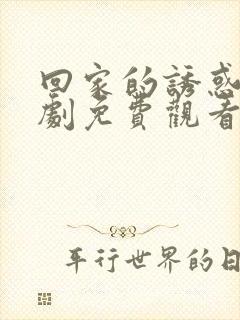 回家的誘惑
劇免費觀看
平行世界的日